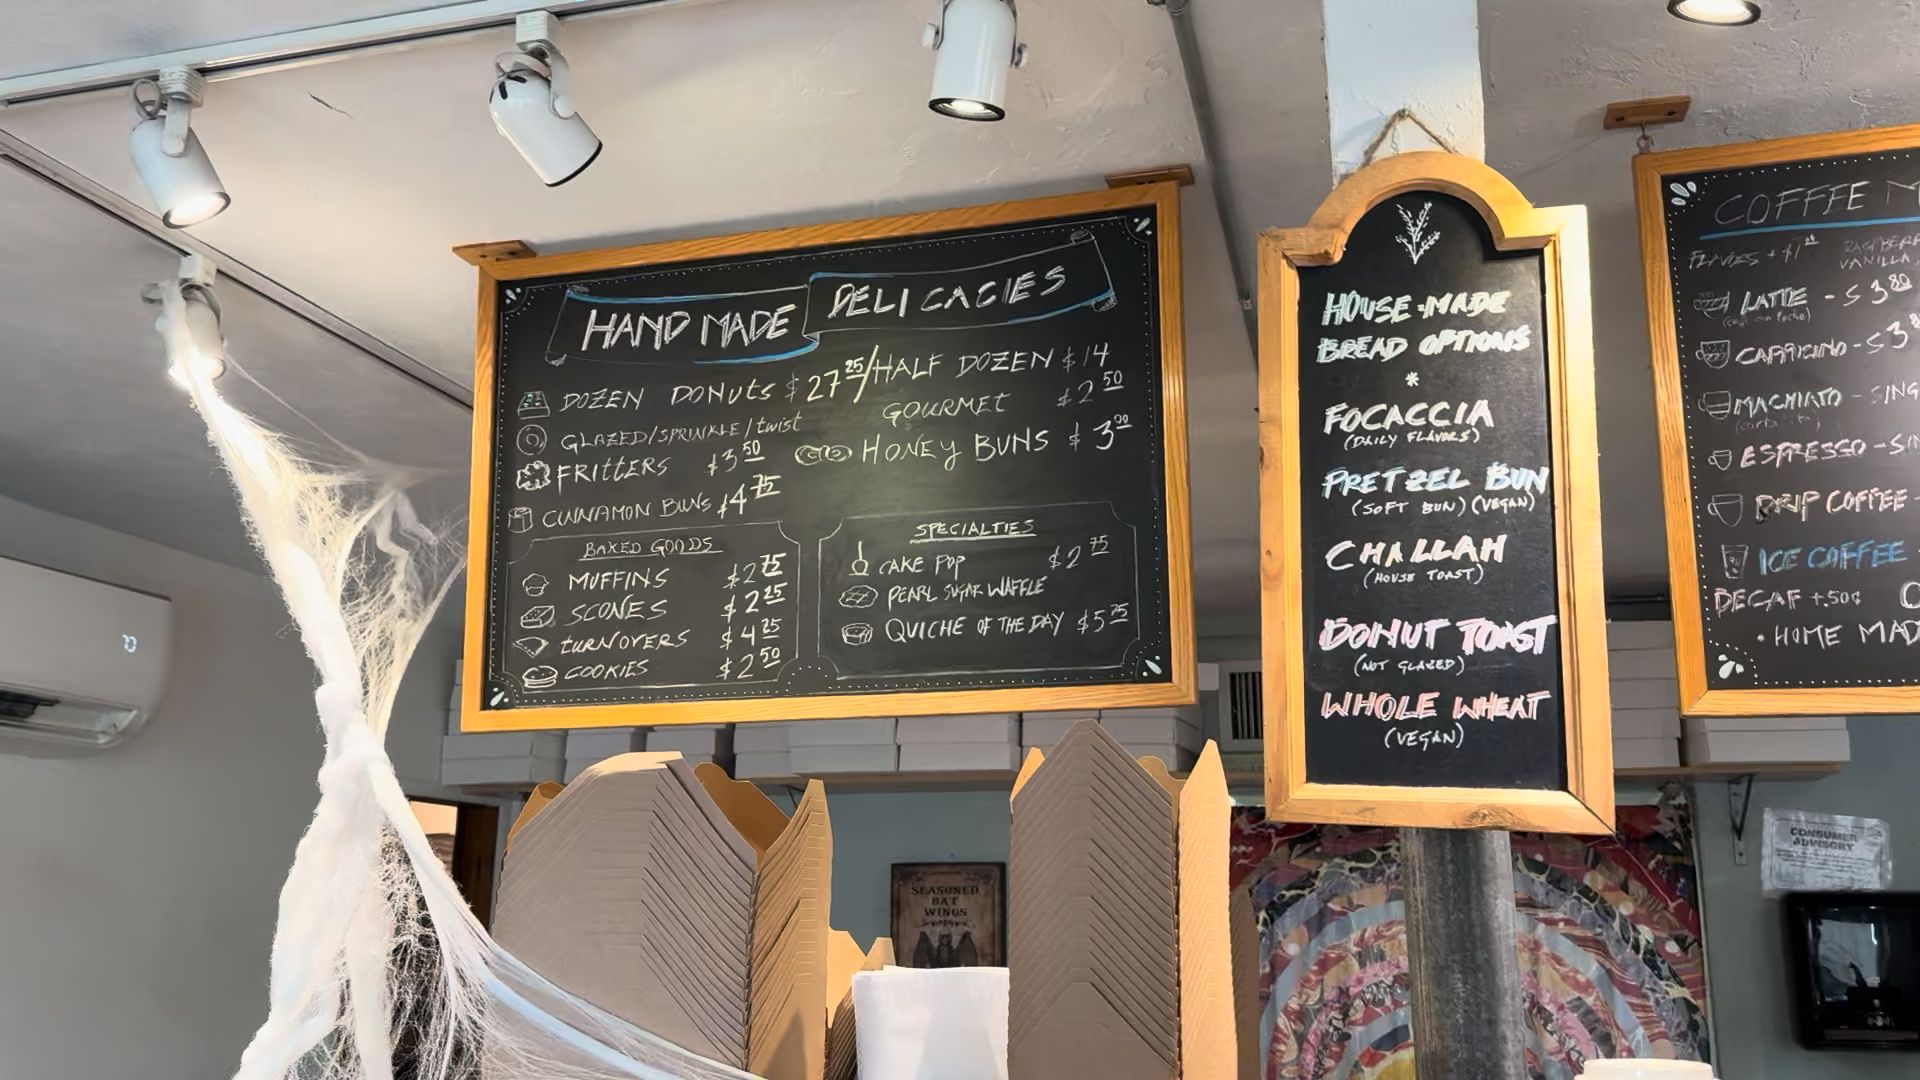 HANDMADE DELICACIES
DOZEN DONUTS $27.25/HALF DOZEN $14
GLAZED/SPRINKLE/twist GOURMET $2.50
FRITTERS $3.50
HONEY BUNS $3.00
CINNAMON BUNS $4.75
BAKED GOODS
MUFFINS $2.75
SCONES $2.25
TURNOVERS $4.25
COOKIES $2.50
SPECIALTIES
CAKE POP $2.75
PEARL SUGAR WAFFLE
QUICHE OF THE DAY $5.75
HOUSE-MADE
BREAD OPTIONS
*
FOCACCIA
(DAILY FLAVORS)
PRETZEL BUN
(SOFT BUN) (VEGAN)
CHALLAH
(HOUSE TOAST)
DONUT TOAST
(NOT GLAZED)
WHOLE WHEAT
(VEGAN)
COFFEE M
VANILLA,
LATTE - $3.80
MACHIATO - SING
ESPRESSO - SIN
DRIP COFFEE -
ICE COFFEE -
DECAF +.50¢
• HOME MAD
SEASONED
BAT
WINGS
CONSUMER
ADVISORY